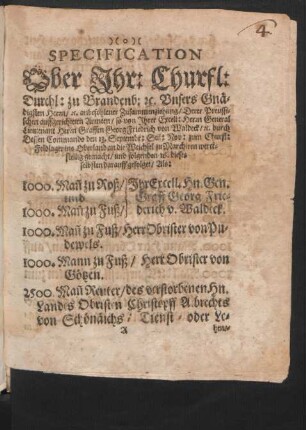 4
)o(
SPECIFICATION
Vber Ihr: Churfl:
Durchl: zu Brandenb: ꝛc. Vnsers Gnä-
digsten Herrn/ ꝛc. anbefohlener Zusammenziehung/ Dero Preussi-
schen auffgerichteten Armeen/ so von Ihrer Excell: Herrn General
Lieutenant Herrn Graffen Georg Friedrich von Waldeck/ ꝛc. durch
Dessen Commando den 13. Septembr: Sui: Nov: zum Churfl:
Feldlager ins Oberland an die Weichsel zu Marchiren werck-
stellig gemacht/ und folgenden 16. dieses
selbsten darauff gefolget/ Als:
1000. Mañ zu Roß/ Ihr Excell. Hn. Gen.
und Graff Georg Frie-
1000. Mañ zu Fuß/ derich v. Waldeck.
1000. Mañ zu Fuß/ Herr Obrister von Pu-
dewels.
1000. Mann zu Fuß/ Herr Obrister von
Götzen.
2500. Mañ Reuter/ des verstorbenen Hn.
Landes Obristen Christopff Albrechts
von Schönäichs/ Dienst- oder Le-
A
hen-